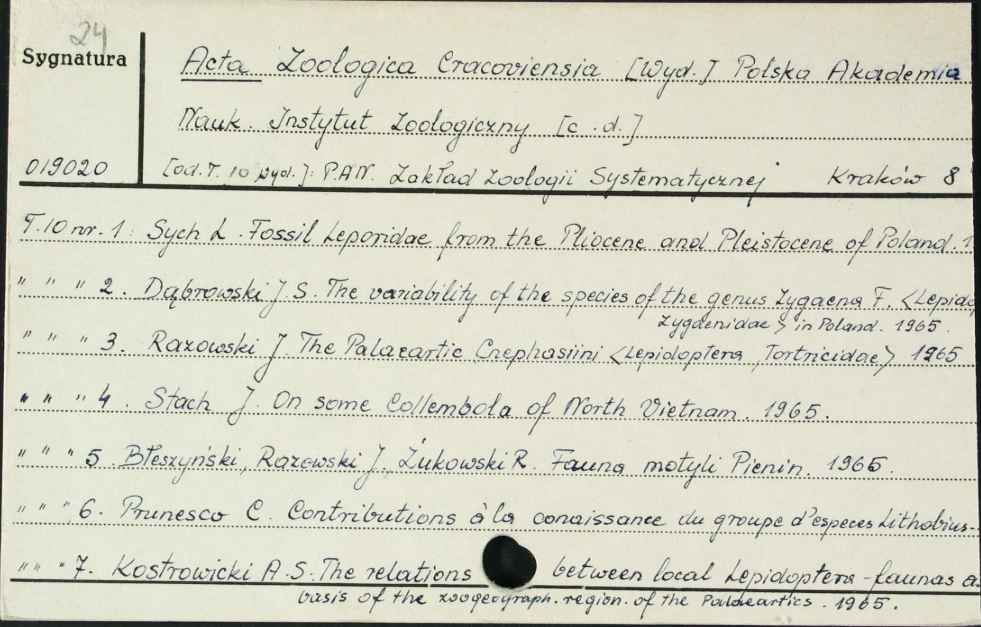 24
Sygnatura
Acta Zoologica Cracoviensia [Wyd.] Polska Akademia
Nauk. Instytut Zoologiczny [c.d.]
019020
[od.T. 10 wyd.]: P.A.N. Zakład Zoologii Systematycznej Kraków 8
T.10 nr. 1: Sych L. Fossil Leporidae from the Pliocene and Pleistocene of Poland. 1
" " " 2. Dąbrowski J. S. The variability of the species of the genus Zygaena F. <Lepido
Zygaenidae> in Poland. 1965.
" " " 3. Razowski J. The Palaeartic Cnephasiini <Lepidoptera, Tortricidae> 1965
" " " 4. Stach J. On some Collembola of North Vietnam. 1965.
" " " 5 Błeszyński, Razowski J., Żukowski R. Fauna motyli Pienin. 1965.
" " " 6. Prunesco C. Contributions à la conaissance du groupe d'especes Lithobius-
" " " 7. Kostrowicki A.S. The relations between local Lepidoptera-faunas a
basis of the zoogeograph. region. of the Palaeartics. 1965.